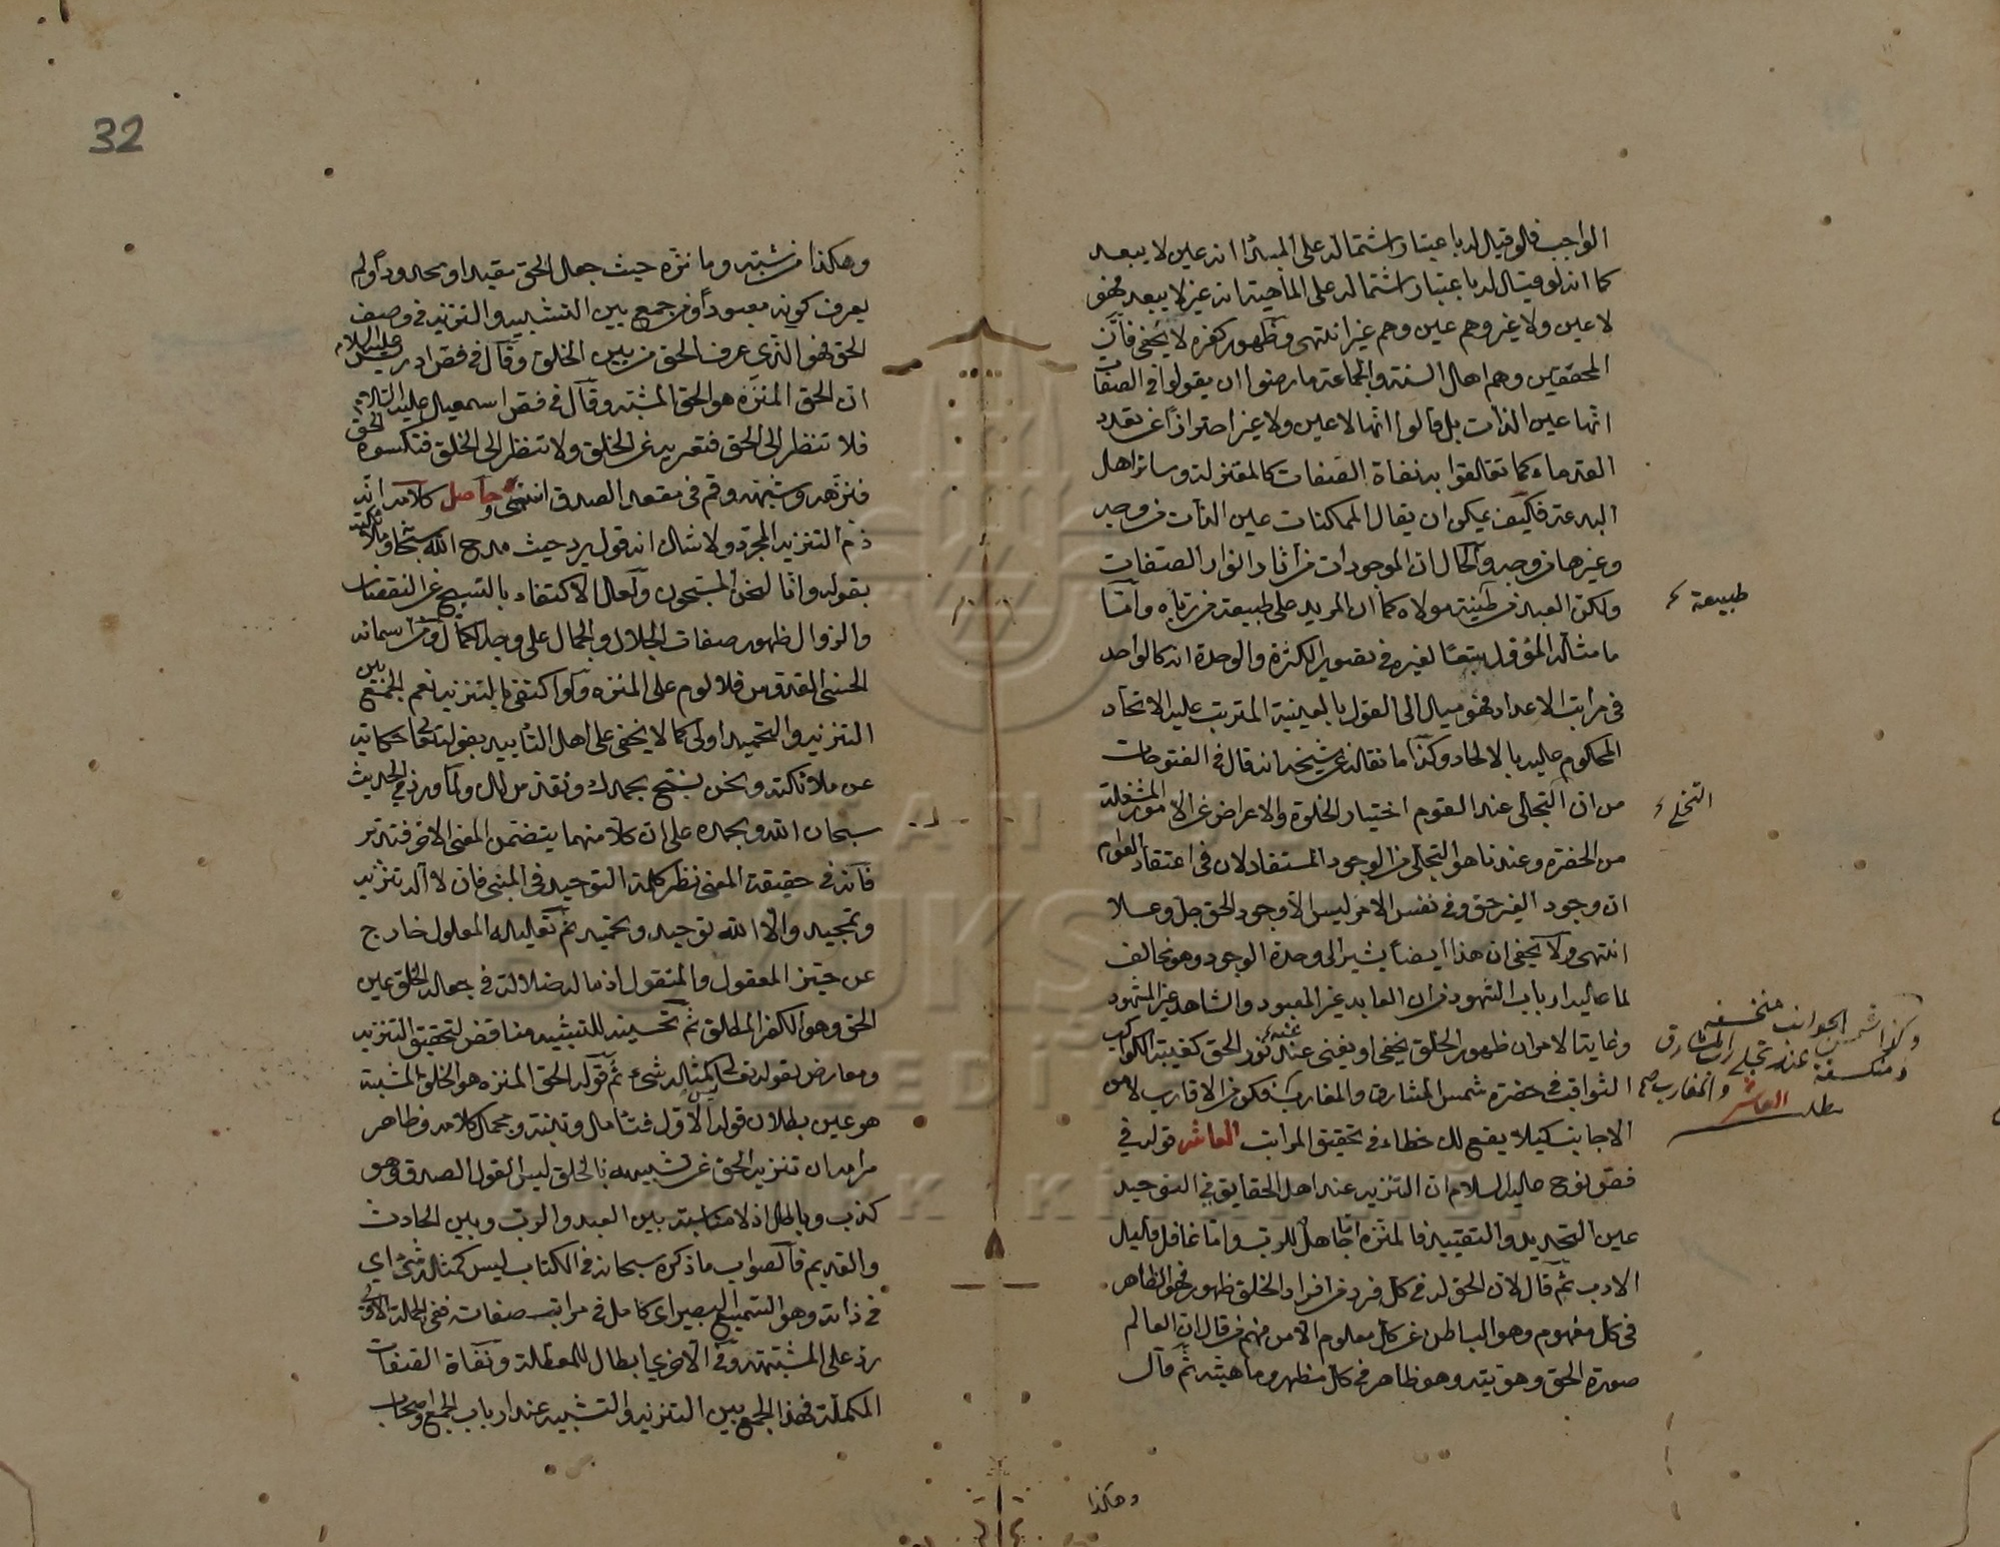 الواجب فلو قيل له باعتبار اشتماله على المبدأ انه عين لا يبعد
كما انه لو قيل له باعتبار اشتماله على الماهية انه غير لا يبعد فهو
لا عين ولا غير وهم عين وهم غير انتهى وظهور كفره لا يخفى فان
المحققين وهم اهل السنة والجماعة ما رضوا ان يقولوا في الصفات
انها عين الذات بل قالوا انها لا عين ولا غير احترازا عن تعدد
القدماء كما تعلقوا به نفاة الصفات كالمعتزلة وسائر اهل
البدعة فكيف يمكن ان يقال الممكنات عين الذات من وجه
وغيرها من وجه والحال ان الموجودات من آثار انوار الصفات
ولكن العبد من طينة مولاه كما ان المريد على طبيعة من رباه واما
ما مثاله المؤول تبعا لغيره في تصوير الكثرة والوحدة انه كالواحد
في مراتب الاعداد فهو ميل الى القول بالعينية المترتب عليه الاتحاد
المحكوم عليه بالالحاد وكذا ما نقله عن شيخه انه قال في الفتوحات
من ان التجلى عند القوم اختيار الخلوة والاعراض عن الامور المشغلة
من الحضرة وعندنا هو التجلى من الوجود المستفاد لان في اعتقاد العوام
ان وجود الغير حق وفي نفس الامر ليس الا وجود الحق جل وعلا
انتهى ولا يخفى ان هذا ايضا يشير الى وحدة الوجود وهو مخالف
لما عليه ارباب الشهود من ان العابد غير المعبود والشاهد غير المشهود
وغاية الامر ان ظهور الخلق يخفى او يفنى عند نور الحق كغيبة الكواكب
الثواقب في حضرة شمس المشارق والمغارب فكن من الاقارب لا من
الاجانب كيلا يقع لك خطاء في تحقيق المراتب العاشر قوله في
فص نوح عليه السلام ان التنزيه عند اهل الحقايق في التوحيد
عين التحديد والتقييد فالمنزه اما جاهل للرب واما غافل قليل
الادب ثم قال لان الحق له في كل فرد من افراد الخلق ظهور فهو الظاهر
في كل مفهوم وهو الباطن عن كل معلوم الا من فهم من قال ان العالم
صورة الحق وهويته وهو ظاهر في كل مظهر وماهيته ثم قال
وهكذا
طبيعة
التخلى
وكذا شمس الجوانب منخسفة
ومنكسفة عند تجلى رب المشارق
والمغارب صح
مطلب العاشر
32
وهكذا من شبه وما نزه حيث جعل الحق مقيدا ومحدودا ولم
يعرف كونه معبودا ومن جمع بين التشبيه والتنزيه في وصف
الحق فهو الذي عرف الحق من بين الخلق وقال في فص ادريس عليه السلام
ان الحق المنزه هو الحق المشبه وقال في فص اسمعيل عليه السلام
فلا تنظر الى الحق فتعريه عن الخلق ولا تنظر الى الخلق فتكسوه الحق
فنزهه وشبهه وقم في مقعد الصدق انتهى وحاصل كلامه انه
ذم التنزيه المجرد ولا شك انه قول يرد حيث مدح الله سبحانه ملائكته
بقوله وانا لنحن المسبحون ولعل الاكتفاء بالتسبيح عن النقصان
والزوال ظهور صفات الجلال والجمال على وجه الكمال ومن اسمائه
الحسنى القدوس فلا لوم على المنزه ولو اكتفى بالتنزيه نعم الجمع بين
التنزيه والتحميد اولى كما لا يخفى على اهل التأييد بقوله تعالى حكاية
عن ملائكته ونحن نسبح بحمدك ونقدس لك ولما ورد في الحديث
سبحان الله وبحمده على ان كلا منهما يتضمن المعنى الآخر فتدبر
فانه في حقيقة المعنى نظير كلمة التوحيد في المبنى فان لا اله تنزيه
وتمجيد والا الله توحيد وتحميد ثم تعليله المعلول خارج
عن حيز المعقول والمنقول اذ ماله ضلالة في جعله الخلق عين
الحق وهو الكفر المطلق ثم تحسينه للتشبيه مناقض لتحقيق التنزيه
ومعارض بقوله تعالى ليس كمثله شيء ثم قوله الحق المنزه هو الخلق المشبه
هو عين بطلان قوله الاول فتأمل وتنبه ومجمل كلامه وظاهر
مرامه ان تنزيه الحق عن تشبيهه بالخلق ليس القول الصدق وهو
كذب وباطل اذ لا مناسبة بين العبد والرب وبين الحادث
والقديم فالصواب ما ذكره سبحانه في الكتاب ليس كمثله شيء اي
في ذاته وهو السميع البصير اي كامل في مراتب صفاته ففي الجملة الاولى
رد على المشبهة وفي الاخرى ابطال للمعطلة ونفاة الصفات
المكملة فهذا الجمع بين التنزيه والتشبيه عند ارباب الجمع واصحاب